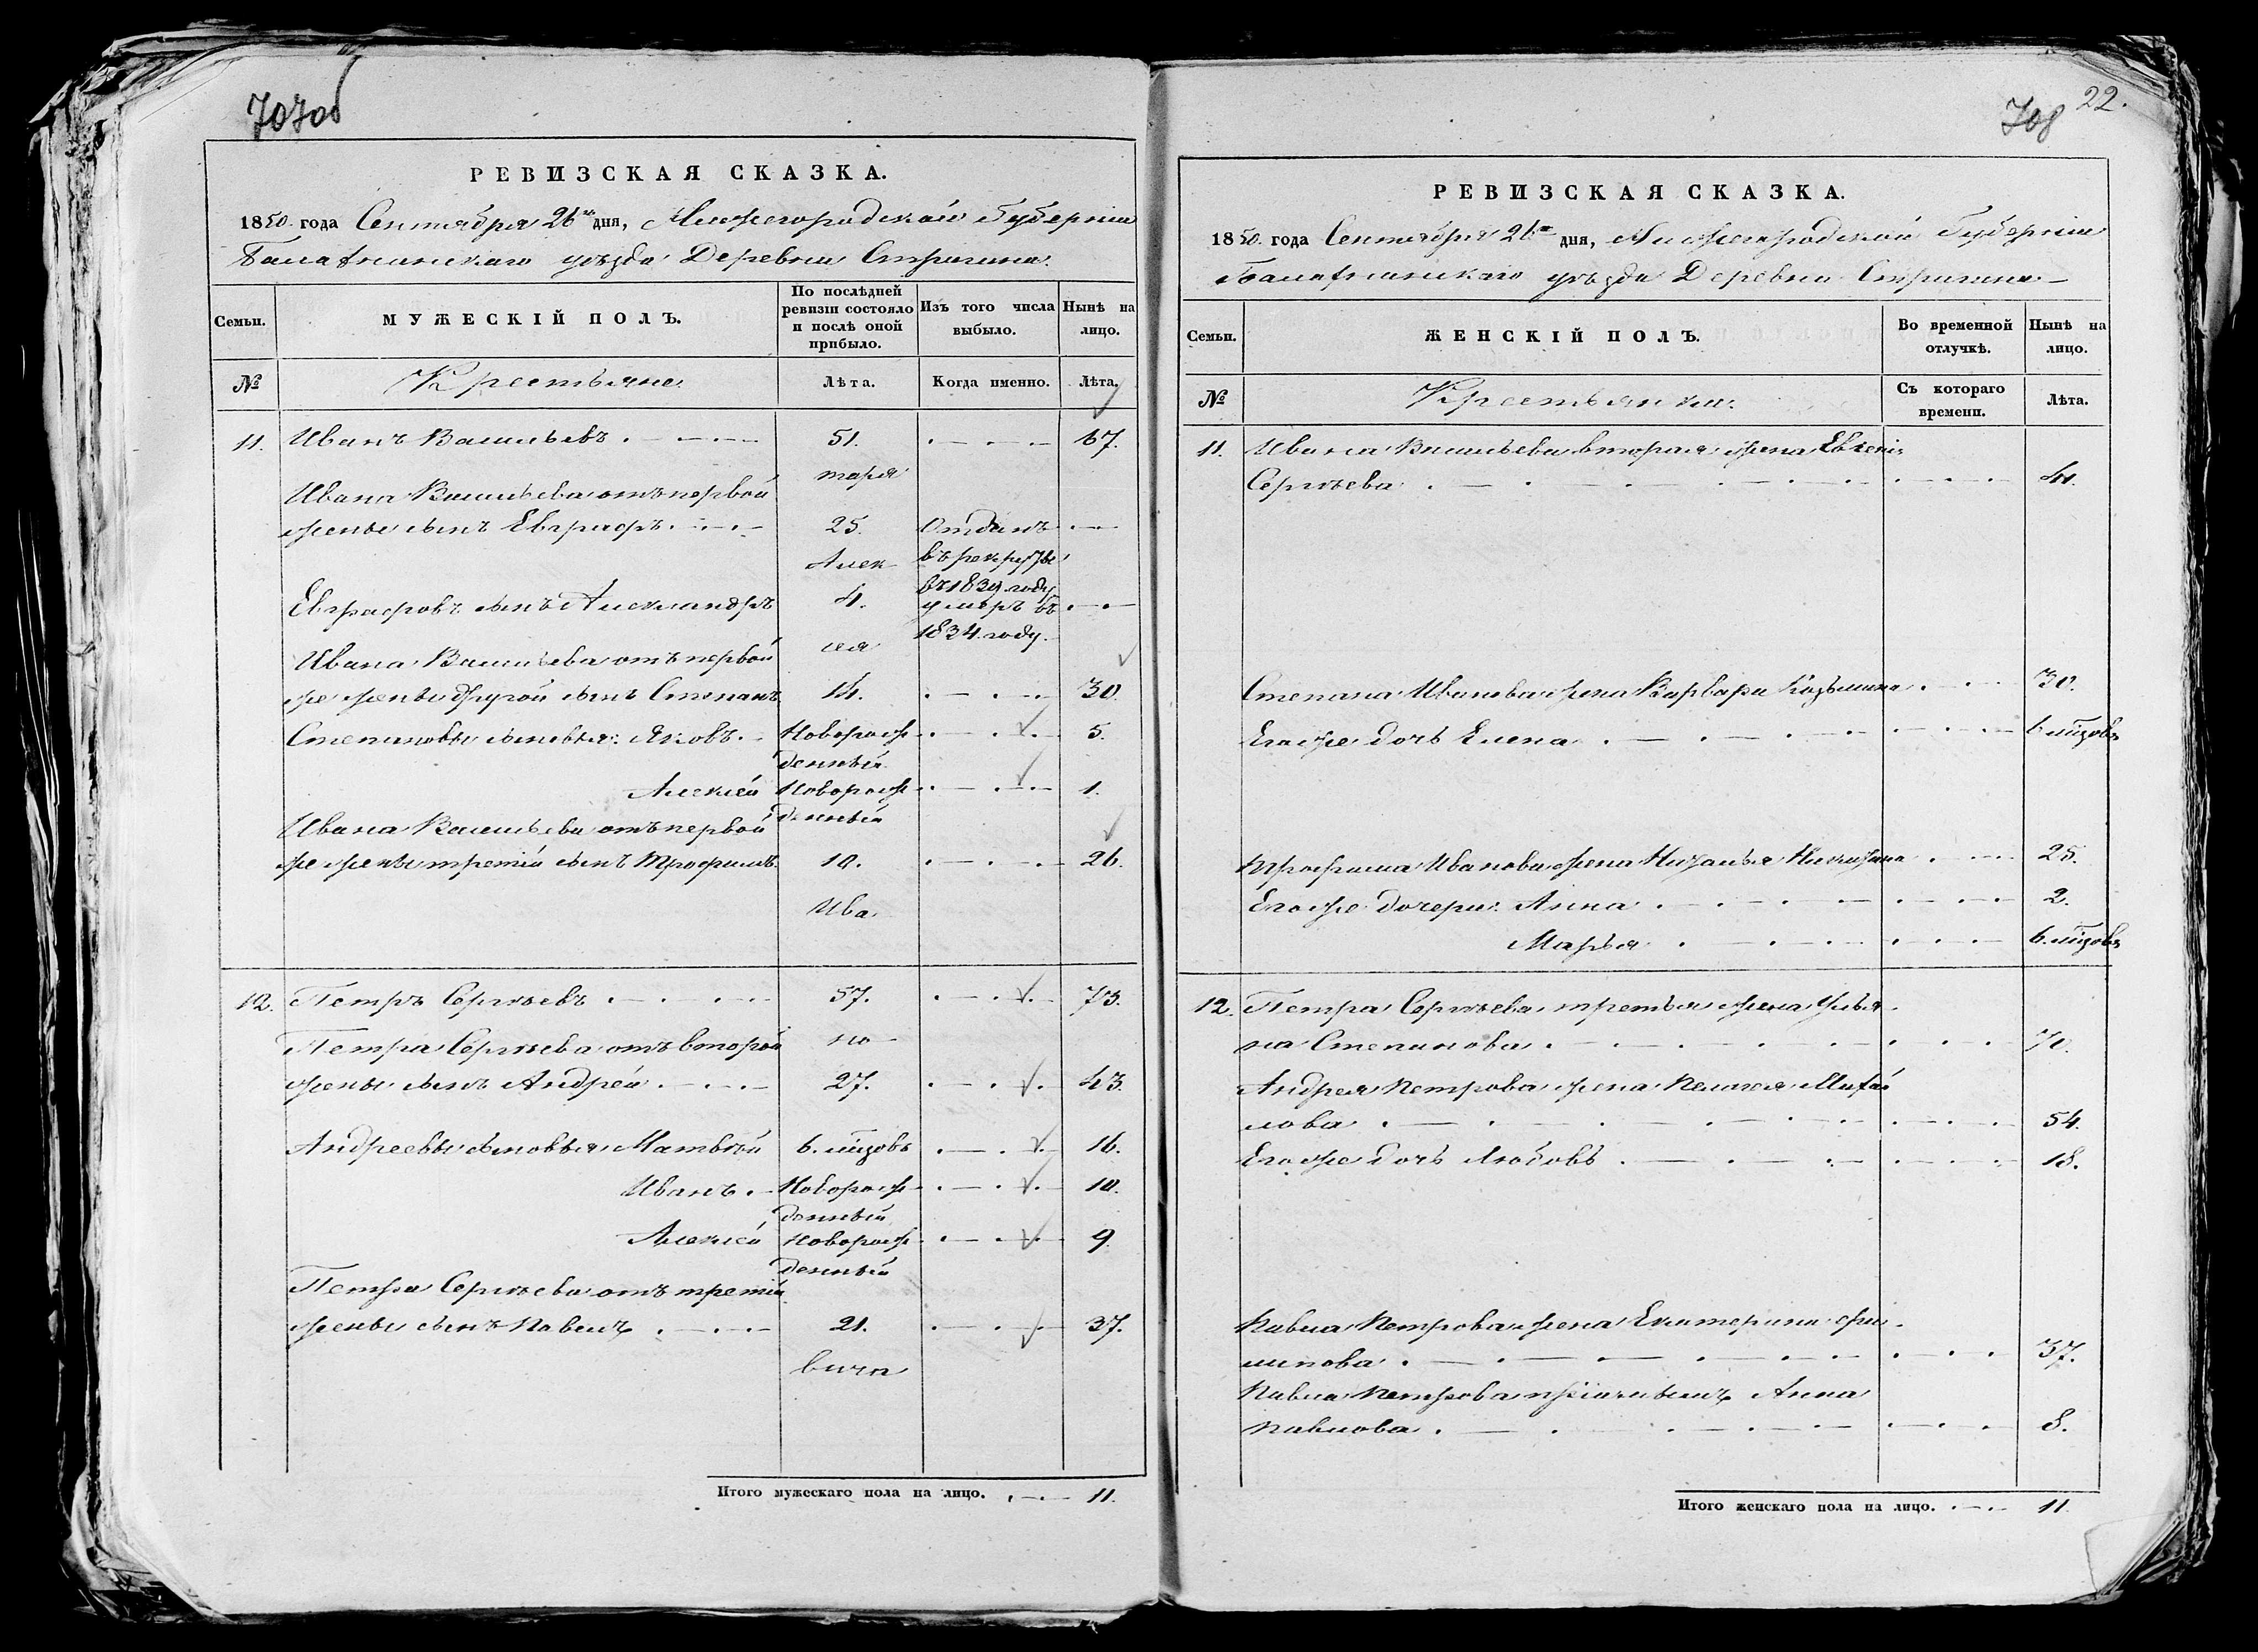 707об
РЕВИЗСКАЯ СКАЗКА.
1850. года Сентября 26го дня, Нижегородской Губернии
Балахнинскаго уѣзда Деревни Стригина.
Семьи.
МУЖЕСКІЙ ПОЛЪ.
По послѣдней ревизіи состояло и послѣ оной прибыло.
Изъ того числа выбыло.
Нынѣ на лицо.
№
Крестьяне
Лѣта.
Когда именно.
Лѣта.
11. Иванъ Васильевъ 51. 67.
таря
Ивана Васильева отъ первой
жены сынъ Евграфъ 25. Отданъ
въ рекруты
въ 1839 году
Алек
Евграфовъ сынъ Александръ 4. умеръ въ
1834 году.
сея
Ивана Васильева отъ первой
же жены другой сынъ Степанъ 14. 30.
Степановы сыновья: Яковъ. Новорож 5.
денный
Алексей Новорож 1.
денный
Ивана Васильева отъ первой
же жены третій сынъ Трофимъ 10. 26.
Ива
12. Петръ Сергѣевъ 57. 73.
но
Петра Сергѣева отъ второй
жены сынъ Андрей 27. 43.
Андреевы сыновья Матвѣй 6. мцовъ 16.
Иванъ. Новорож 10.
денный
Алексей Новорож 9.
денный
Петра Сергѣева отъ третій
жены сынъ Павелъ 21. 37.
вича
Итого мужескаго пола на лицо. 11.
708 22.
РЕВИЗСКАЯ СКАЗКА.
1850. года Сентября 26го дня, Нижегородской Губерніи
Балахнинскаго уѣзда Деревни Стригина
Семьи.
ЖЕНСКІЙ ПОЛЪ.
Во временной отлучкѣ.
Нынѣ на лицо.
№
Крестьянки.
Съ котораго времени.
Лѣта.
11. Ивана Васильева вторая жена Евгенія
Сергѣева 41.
Степана Иванова жена Варвара Козьмина 30.
Его же дочь Елена 6 мцовъ
Трофима Иванова жена Наталья Никитина 25.
Его же дочери: Анна 2.
Марья 6. мцовъ
12. Петра Сергѣева третья жена Улья
на Степанова 70.
Андрея Петрова жена Пелагея Михай
лова 54.
Его же дочь Любовь 18.
Павла Петрова жена Екатерина Фи
липова 37.
Павла Петрова Анна
Павлова 8.
Итого женскаго пола на лицо. 11.